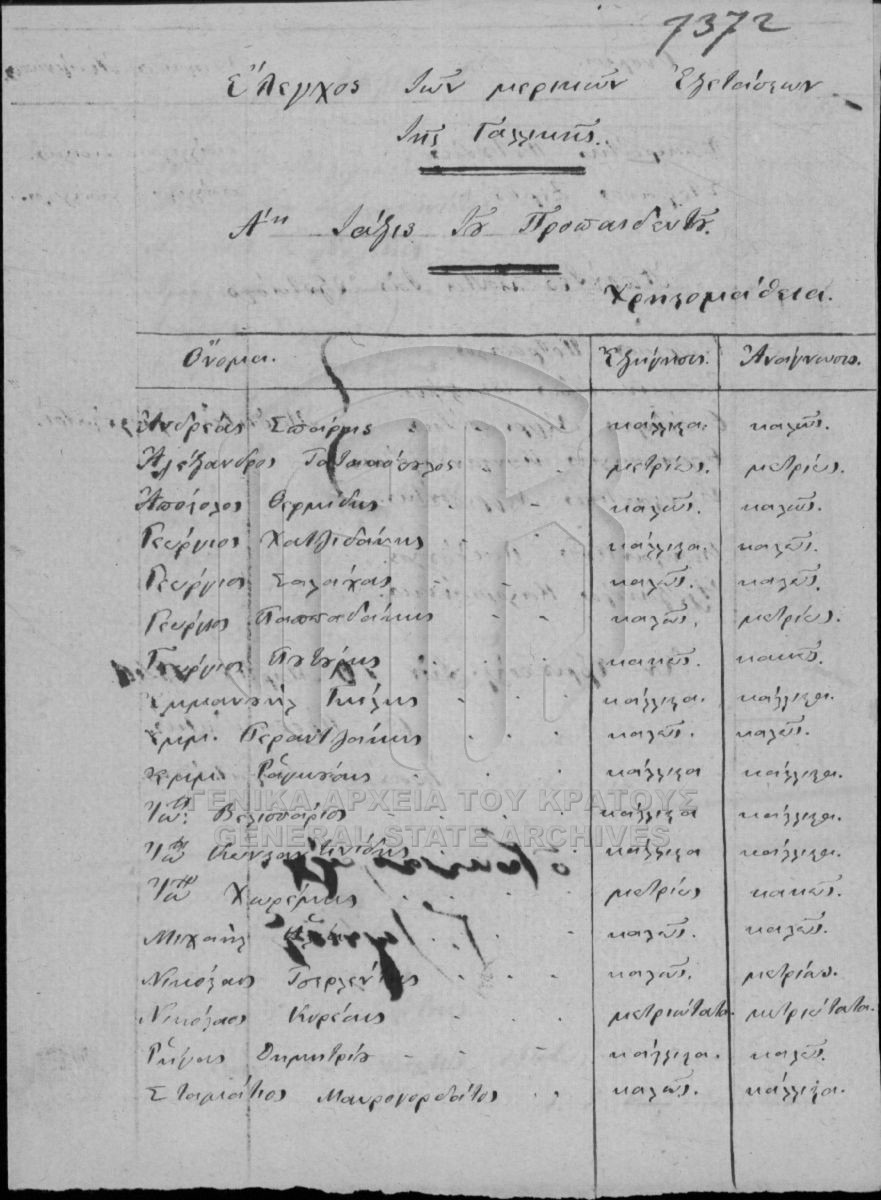 7372
Έλεγχος τῶν μερικῶν Ἐξετάσεων
τῆς Γαλλικῆς.
Α΄η τάξις τȣ Προπαιδευτȣ.
Χρηστομάθεια.
Ὄνομα. Ἐξήγησις. Ἀνάγνωσις.
Ἀνδρέας Σπάρης κάλλιστα. καλῶς.
Ἀλέξανδρος μετρίως. μετρίως.
Ἀπόστολος Θερμίδης καλῶς. καλῶς.
Γεώργιος Χατζιδάκης κάλλιστα. καλῶς.
Γεώργιος Σαλάχας καλῶς. καλῶς.
Γεώργιος Παππαδάκης καλῶς. μετρίως.
Γεώργιος κακῶς. κακῶς.
Ἐμμανȣήλ κάλλιστα. κάλλιστα.
Ἐμμ. Περαντζάκης καλῶς. καλῶς.
Ἐμμ. κάλλιστα κάλλιστα.
Ἰω: Βελισσάριος κάλλιστα κάλλιστα.
Ἰω Κωνσταντινίδης κάλλιστα κάλλιστα.
Ἰω Χωρέμης μετρίως κακῶς.
Μιχαήλ καλῶς. καλῶς.
Νικόλαος Τσερλέντης καλῶς. μετρίως.
Νικόλαος Κυρέκης μετριώτατα. μετριώτατα.
Ῥήγας Δημητρίȣ κάλλιστα. καλῶς.
Σταμάτιος Μαυρογορδάτος καλῶς. κάλλιστα.
ΓΕΝΙΚΑ ΑΡΧΕΙΑ ΤΟΥ ΚΡΑΤΟΥΣ
GENERAL STATE ARCHIVES